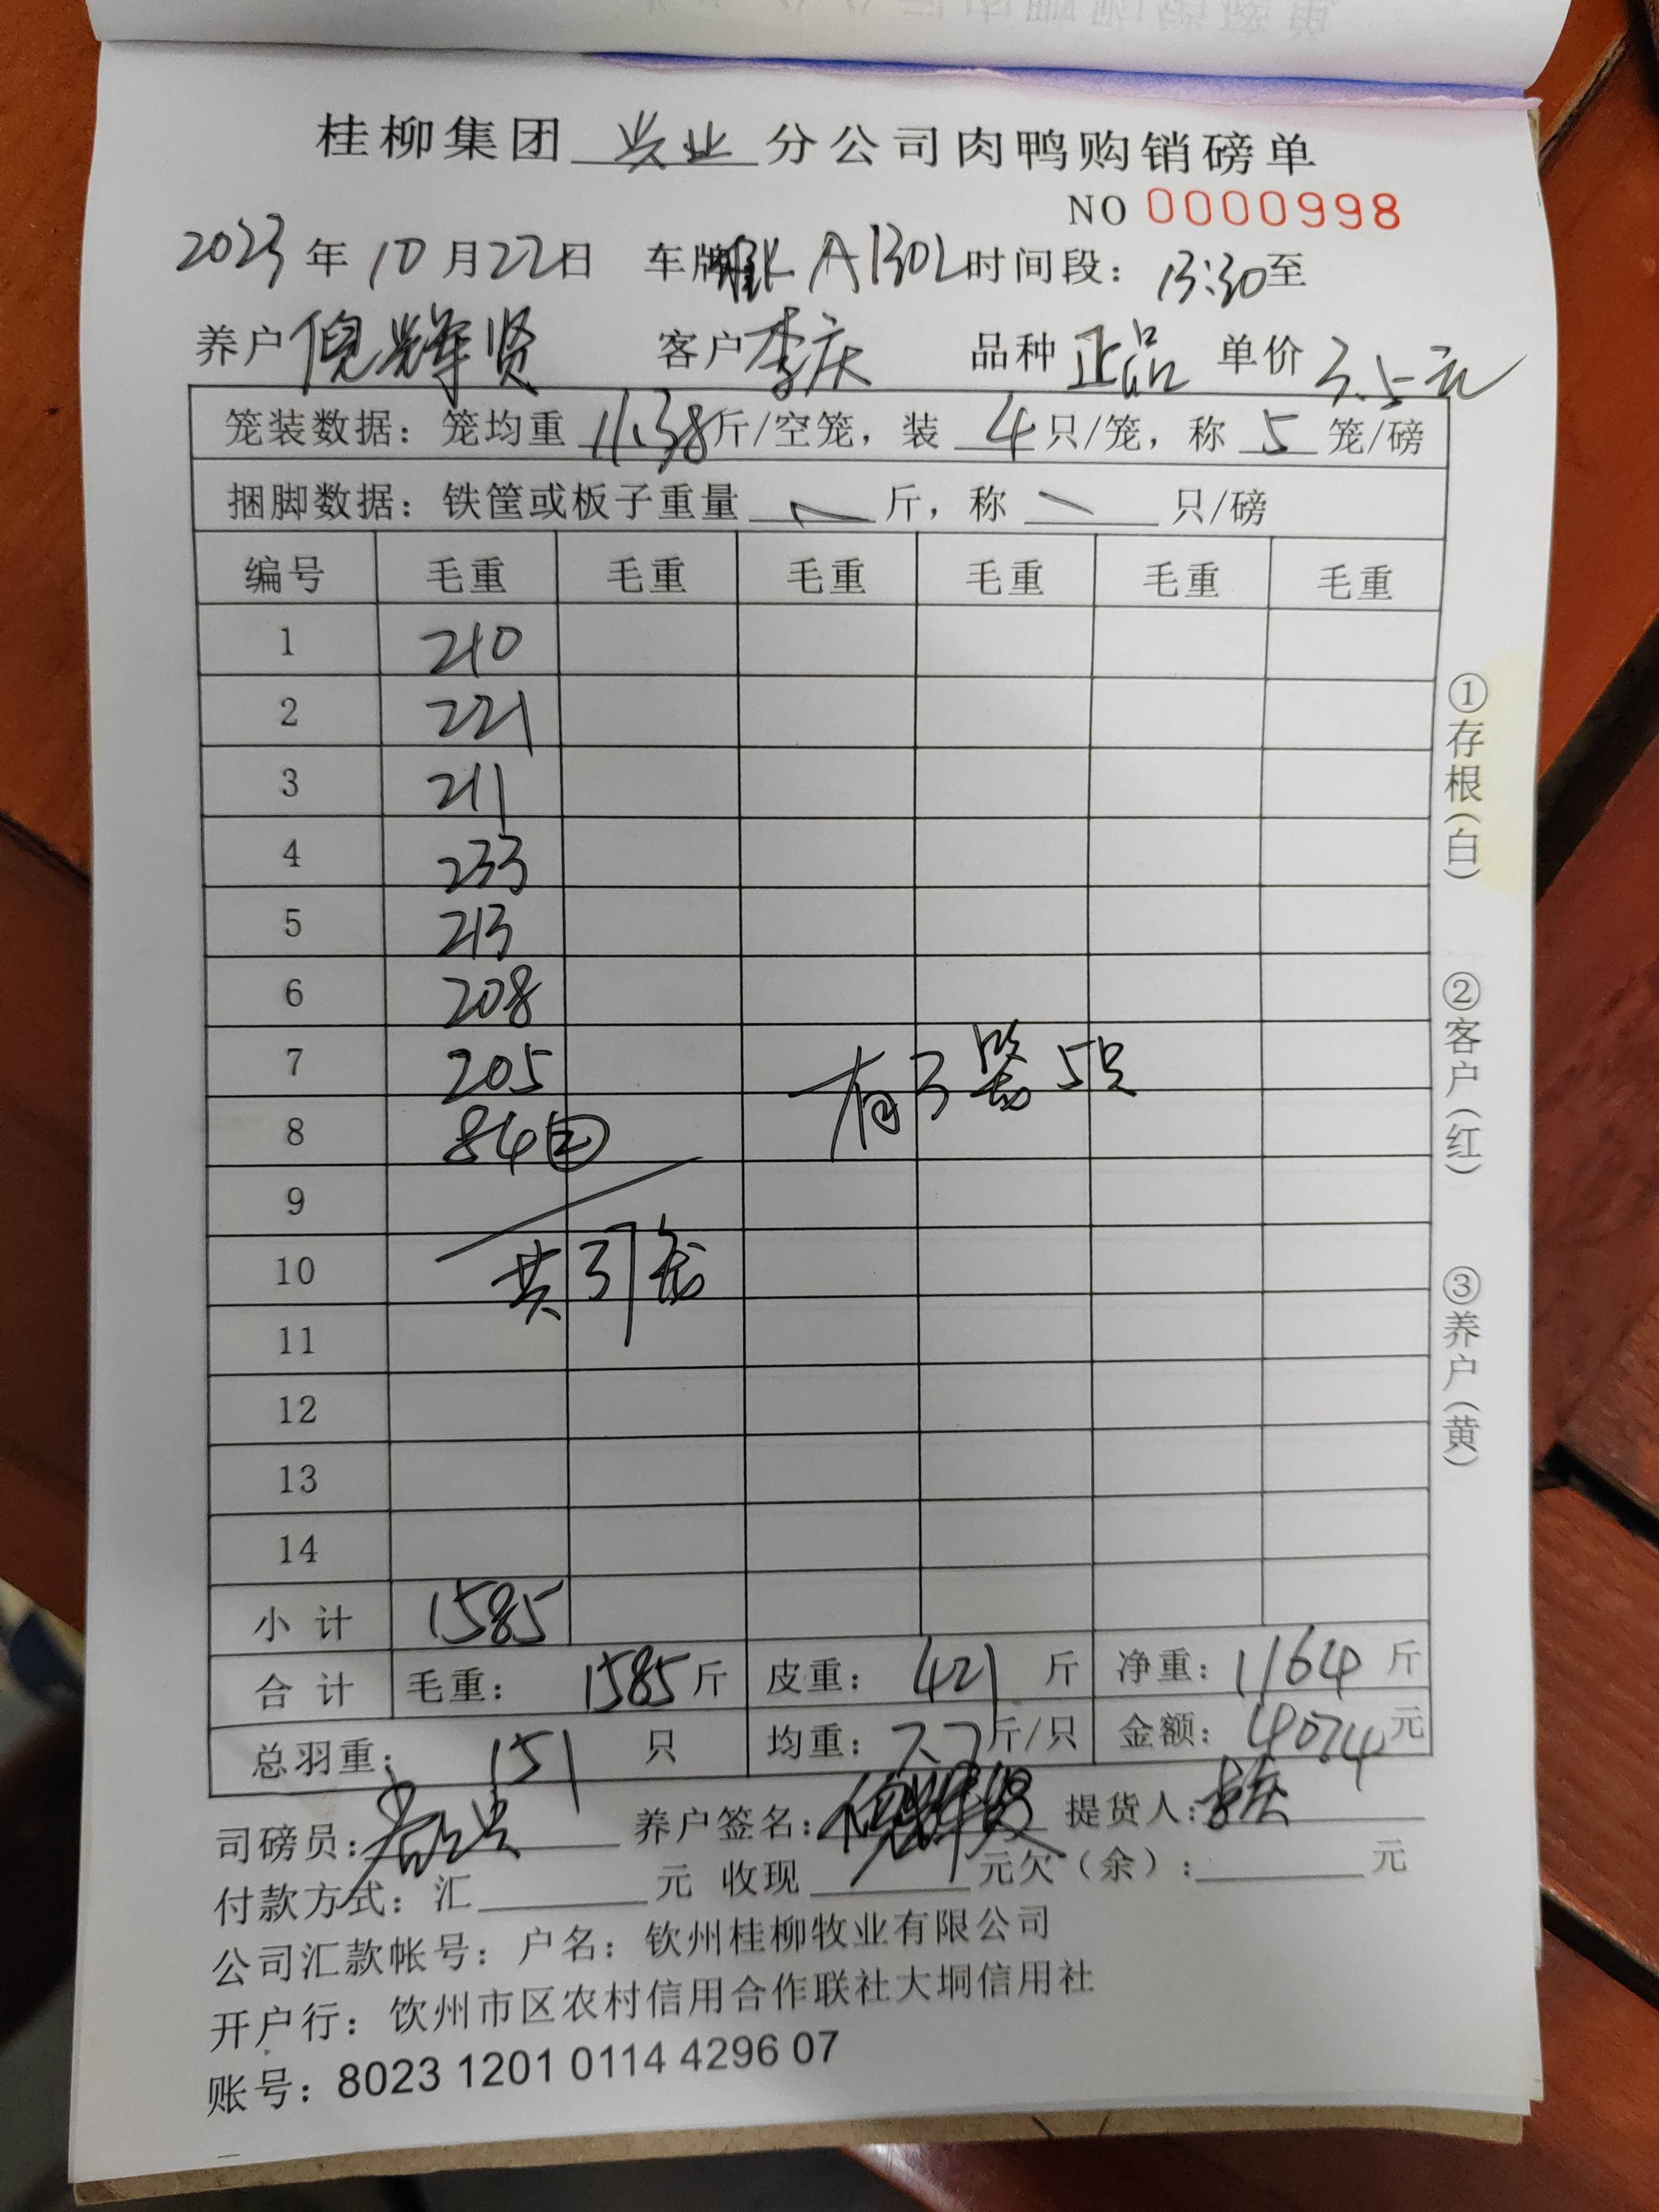 桂柳集团 兴业 分公司肉鸭购销磅单
NO 0000998
2023 年 10 月 22 日 车牌 A1302 时间段：13:30 至
养户 倪辉贤 客户 李庆 品种 正品 单价 3.5元
笼装数据：笼均重 11.38 斤/空笼，装 4 只/笼，称 5 笼/磅
捆脚数据：铁筐或板子重量 斤，称 只/磅
编号 毛重 毛重 毛重 毛重 毛重 毛重
1 210
2 221
3 211
4 233
5 213
6 208
7 205 有3笼5只
8 84②
9
10 共37笼
11
12
13
14
小计 1585
合计 毛重：1585斤 皮重：421 斤 净重：1164 斤
总羽重：151 只 均重：7.7斤/只 金额：4074元
司磅员： 养户签名：倪辉贤 提货人：李庆
付款方式：汇 元 收现 元欠（余）： 元
公司汇款帐号：户名：钦州桂柳牧业有限公司
开户行：钦州市区农村信用合作联社大垌信用社
账号：8023 1201 0114 4296 07
①存根（白）
②客户（红）
③养户（黄）